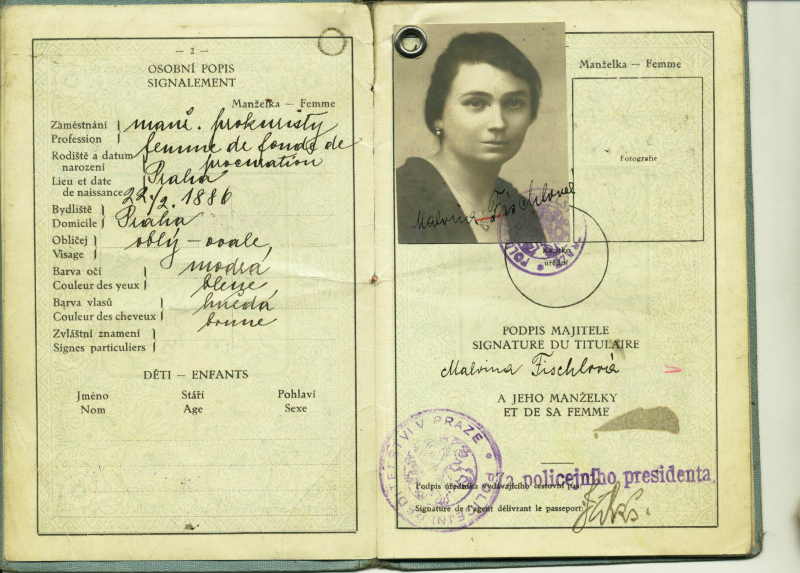 — 2 —
OSOBNÍ POPIS
SIGNALEMENT
Manželka — Femme
Zaměstnání
Profession
manž. prokuristy
femme de fondé de
procuration
Rodiště a datum
narození
Lieu et date
de naissance
Praha
22./2. 1886
Bydliště
Domicile
Praha
Obličej
Visage
oblý – ovale
Barva očí
Couleur des yeux
modrá
bleue
Barva vlasů
Couleur des cheveux
hnědá
brune
Zvláštní znamení
Signes particuliers
DĚTI — ENFANTS
Jméno Stáří Pohlaví
Nom Age Sexe
Manželka — Femme
Fotografie
Malvina Fischlová
PODPIS MAJITELE
SIGNATURE DU TITULAIRE
Malvina Fischlová
A JEHO MANŽELKY
ET DE SA FEMME
POLICEJNÍ ŘEDITELSTVÍ V PRAZE
Za policejního presidenta
Podpis úředníka vydávajícího cestovní pas
Signature de l'agent délivrant le passeport